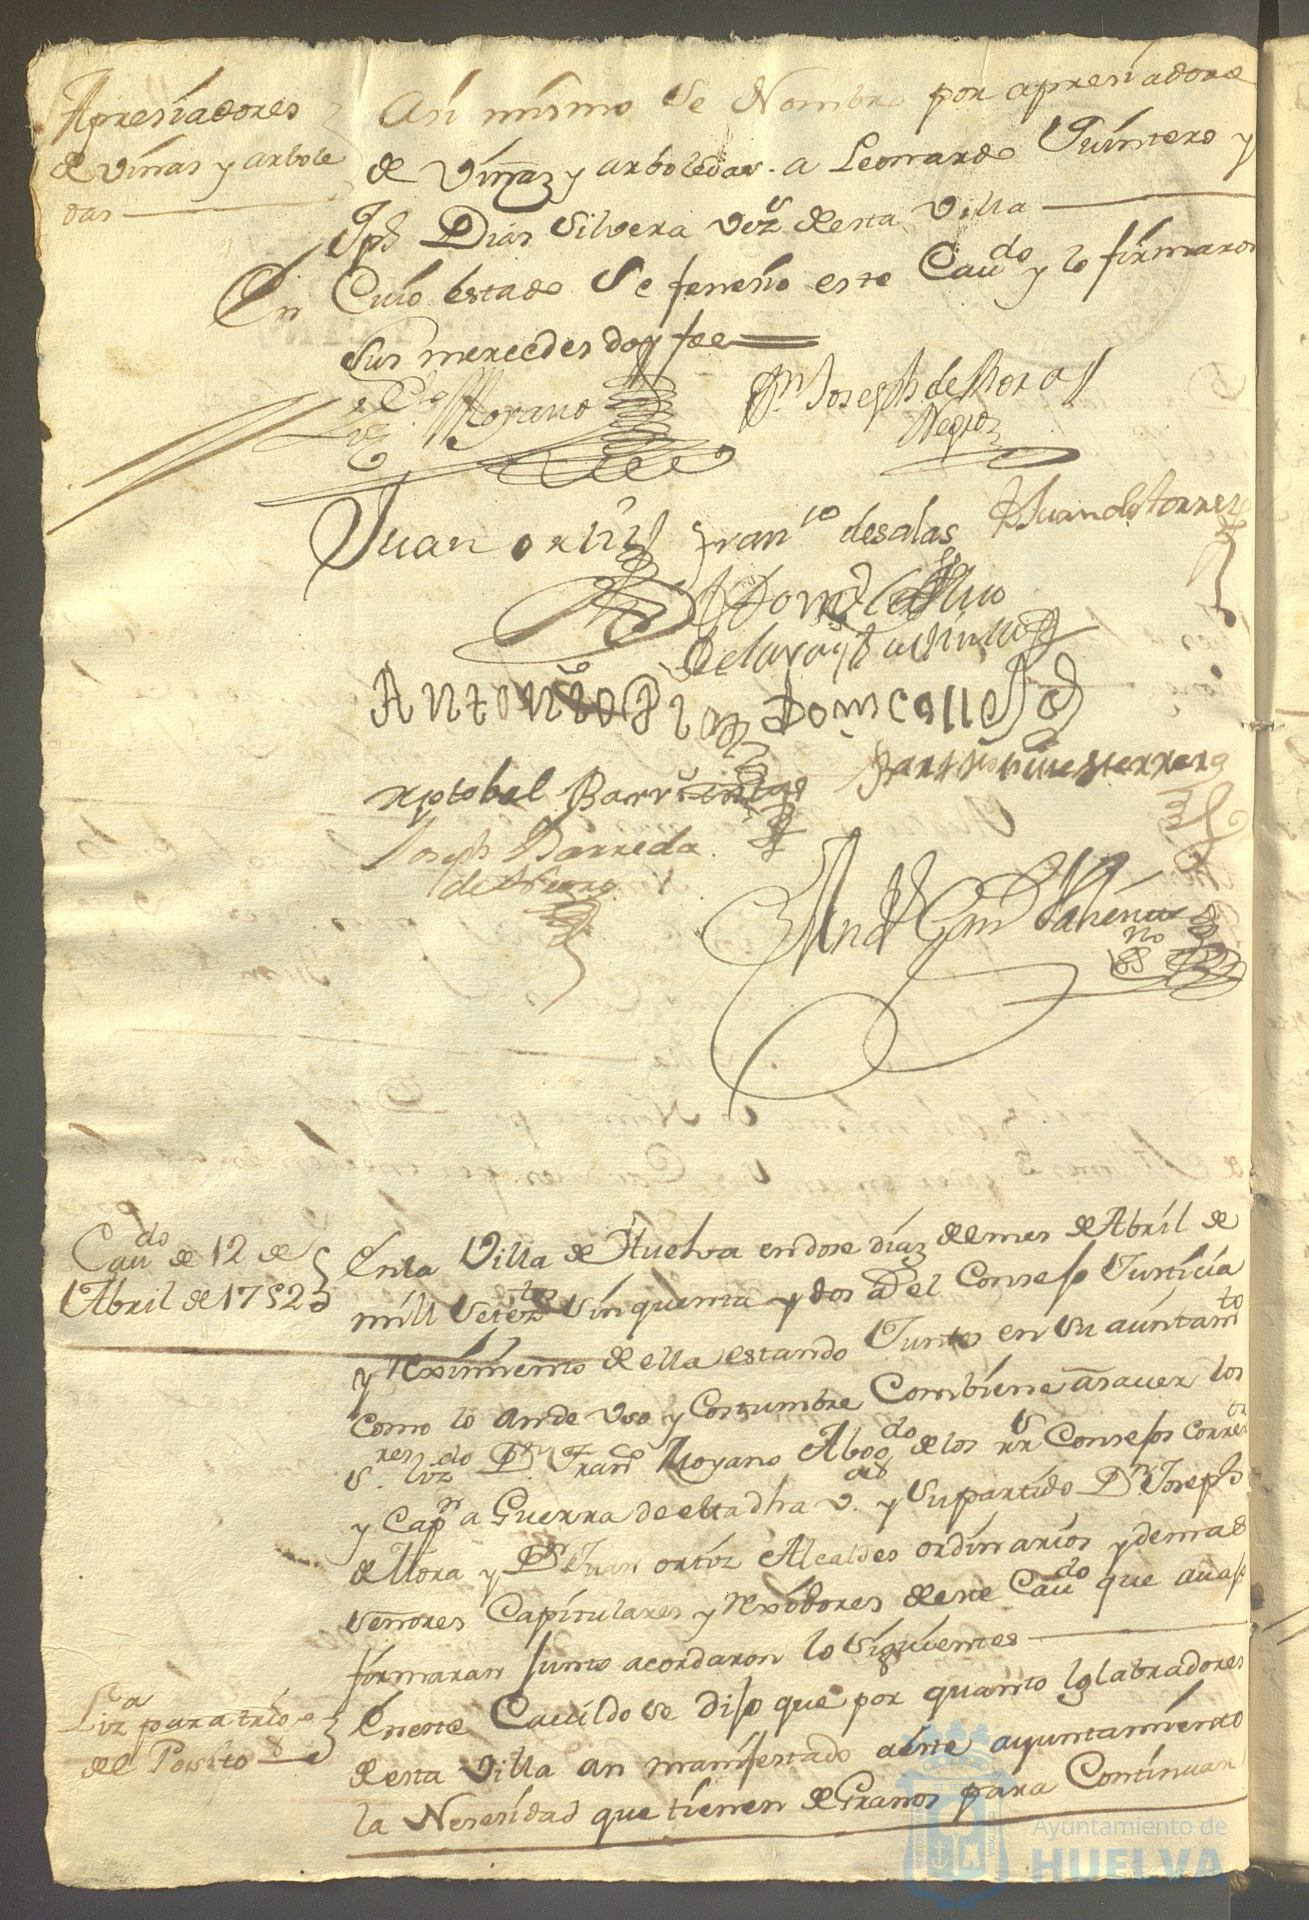 Apresiadores
de viñas y arbole
das
Asi mismo Se Nombra por apresiadores
de Viñas y arboledas a Leonardo Quintero y
Jph Dias Silvera vezs desta Villa
En Cuio estado Se fenesio este Caudo y lo firmaron
Sus mercedes doy fee
Lizdo Moyano
Dn Joseph de Mora
Negro
Juan ortiz
Franco de salas
Juan de torres
Antonio Diaz
Domco
Xptobal Barrientos
Joseph Barreda
Caudo de 12 de
Abril de 1752
En la Villa de Huelva en dose dias de mes de Abril de
mill Setezos sinquenta y dos as el Consejo Justicia
y reximiento de ella estando Juntos en su aiuntamto
como lo an de uso y Costumbre Combiene asaver los
Sres lizdo Dn Franco Moyano Abogdo de los rrs Consejos Correxor
y Capn a Guerra de esta dha va y Su partido Dn Joseph
de Mora y Dn Juan ortiz Alcaldes ordinarios y demas
señores Capitulares y rexidores deste Caudo que avajo
firmaran Junto acordaron lo Siguiente
Liza para trigo
del Posito
En este Cavildo se dijo que por quanto los labradores
desta Villa an manifestado a este ayuntamiento
la Nesesidad que tienen de Granos para Continuar
Ayuntamiento de
HUELVA